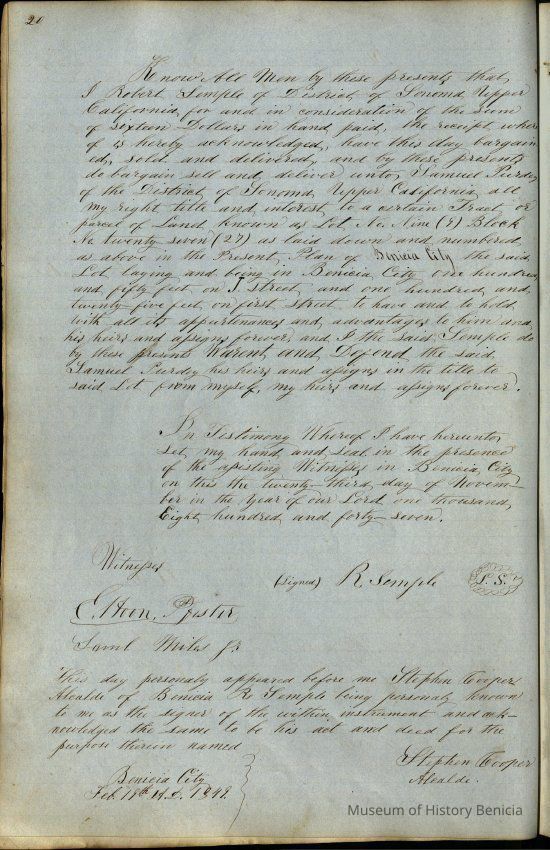 20
Know All Men by these presents that
I Robert Semple of District of Sonoma Upper
California for and in consideration of the sum
of sixteen Dollars in hand paid, the receipt where
of is hereby acknowledged, have this day bargain
ed, sold and delivered, and by these presents
do bargain sell and deliver unto Samuel Purdy
of the District of Sonoma Upper California all
my right title and interest to a certain Tract or
parcel of Land known as Lot No. Nine (9) Block
No twenty seven (27) as laid down and numbered
as above in the Present Plan of Benicia City the said
Lot laying and being in Benicia City one hundred
and fifty feet on J Street, and one hundred and
twenty five feet on first Street to have and to hold
with all its appurtenances and advantages to him and
his heirs and assigns forever, and I the said Semple do
by these present Warent and Defend the said
Samuel Purdy his heirs and assigns in the title to
said Lot from myself, my heirs and assigns forever.
In Testimony Whereof I have hereunto
Set my hand and seal in the presence
of the assisting Witnesses in Benicia City
on this the twenty-third day of Novem-
ber in the Year of our Lord one thousand
Eight hundred and forty-seven.
Witnesses
(signed) R. Semple L.S.
Saml Miles Jr
This day personaly appeared before me Stephen Cooper
Alcalde of Benicia R Semple being personaly known
to me as the signer of the within instrument and ack-
nowledged the same to be his act and deed for the
purpose therein named
Stephen Cooper
Alcalde.
Benicia City
Feb. 18th A.D. 1848.
Museum of History Benicia